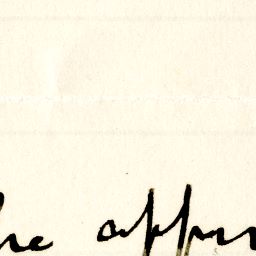 he appr